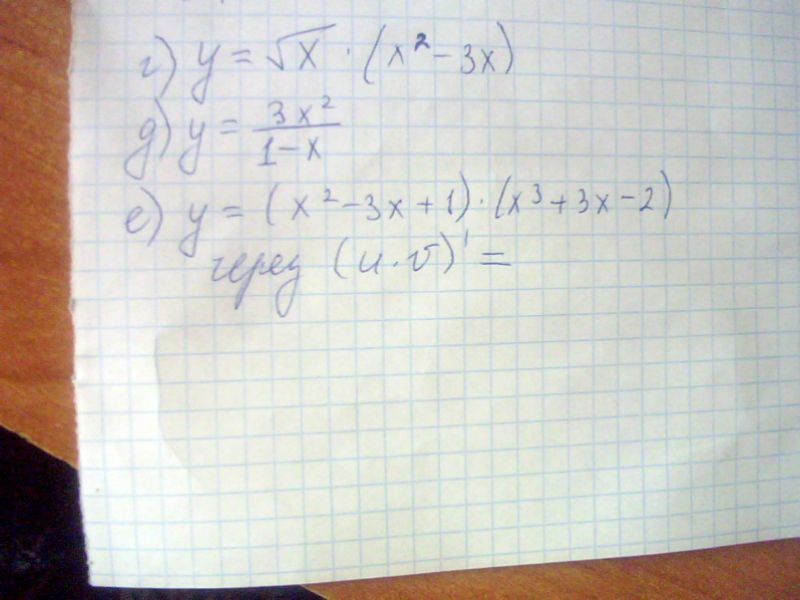 г) y = √x · (x² - 3x)
д) y = 3x² / (1-x)
е) y = (x² - 3x + 1) · (x³ + 3x - 2)
через (u·v)' =